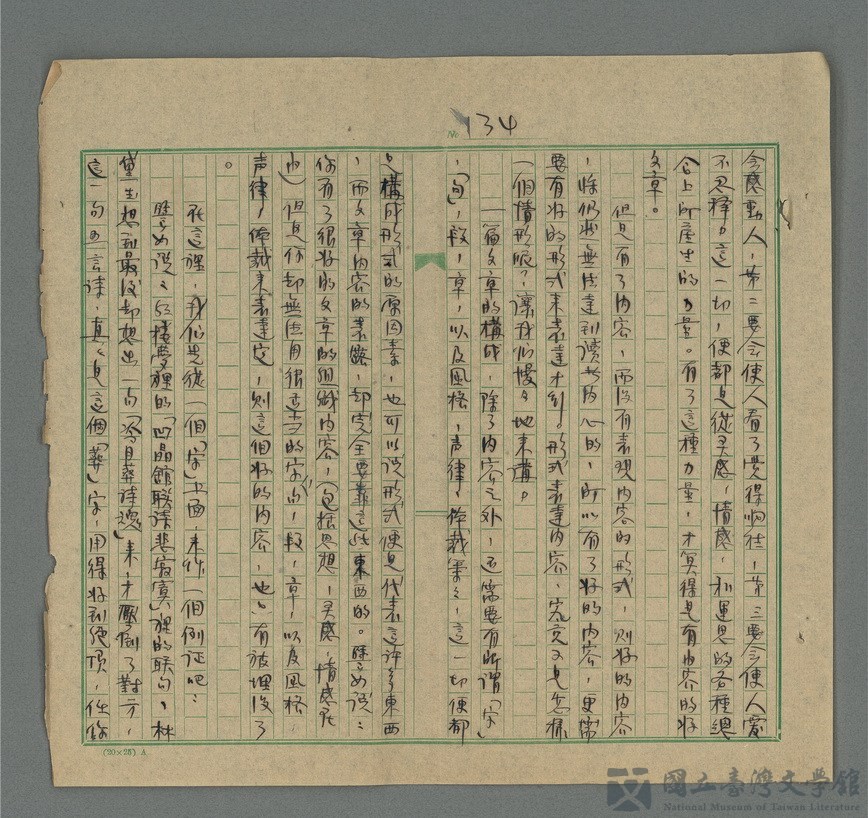 No 134
令感動人，第二要令使人看了覺得明社，第三要令使人愛
不忍釋。這一切，便都是從灵感，情感，和運思的各種總
合上所產生的力量。有了這種力量，才算得是有內容的好
文章。
但是有了內容，而沒有表現內容的形式，則好的內容
，條仍然無法達到讀者內心的，所以有了好的內容，更需
要有好的形式来表達才行。形式表達內容，究竟又是怎樣
一個情形呢？讓我们慢々地来講。
一篇文章的構成，除了內容之外，还需要有所謂「字」
，「句」，段，章，以及風格，声律，体裁等々，這一切便都
是構成形式的原因素，也可以说形式便是代表這许多東西
，而文章內容的表露，却完全要靠這些東西的。譬如说：
你有了很好的文章的組織內容，（包括思想，灵感，情感在
內）但是你却無法用很適当的字句，段，章，以及風格，
声律，体裁来表達它，則這個好的內容，也只有被埋没了
。
在這裡，我们先從一個「字」上面，来作一個例证吧：
譬如说：红楼夢裡的「凹晶館聯詩悲寂寞」裡的联句，林
黛玉想到最後却想出一句「冷月葬詩魂」来，才壓倒了對方，
這一句五言詩，真々是這個「葬」字，用得好到絕頂，任你
(20×25) A
國立臺灣文學館
National Museum of Taiwan Literature